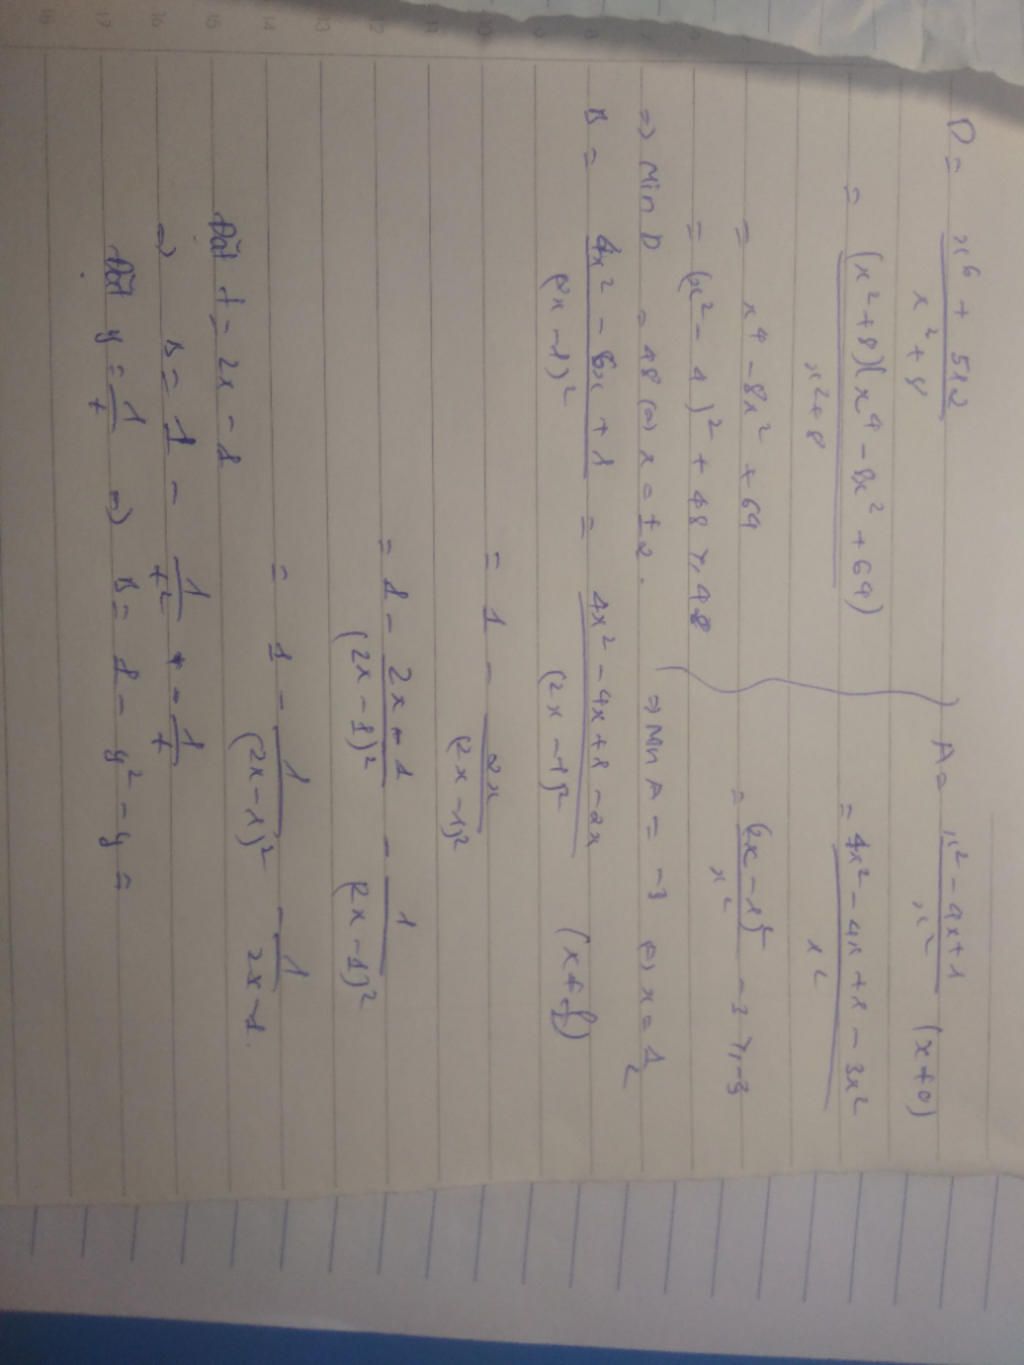 D = \frac{x^6 + 512}{x^2 + 8}
= \frac{(x^2+8)(x^4 - 8x^2 + 64)}{x^2+8}
= x^4 - 8x^2 + 64
= (x^2 - 4)^2 + 48 ≥ 48
=) Min D = 48 (=) x = ±2.
A = \frac{x^2 - 4x + 1}{x^2} (x ≠ 0)
= \frac{4x^2 - 4x + 1 - 3x^2}{x^2}
= \frac{(2x - 1)^2}{x^2} - 3 ≥ -3
=) Min A = -3 (=) x = \frac{1}{2}
B = \frac{4x^2 - 6x + 1}{(2x - 1)^2} = \frac{4x^2 - 4x + 1 - 2x}{(2x - 1)^2}
= 1 - \frac{2x}{(2x - 1)^2}
= 1 - \frac{2x - 1}{(2x - 1)^2} - \frac{1}{(2x - 1)^2}
= 1 - \frac{1}{(2x - 1)^2} - \frac{1}{2x - 1}.
Đặt t = 2x - 1
=) B = 1 - \frac{1}{t^2} - \frac{1}{t}
Đặt y = \frac{1}{t} =) B = 1 - y^2 - y =